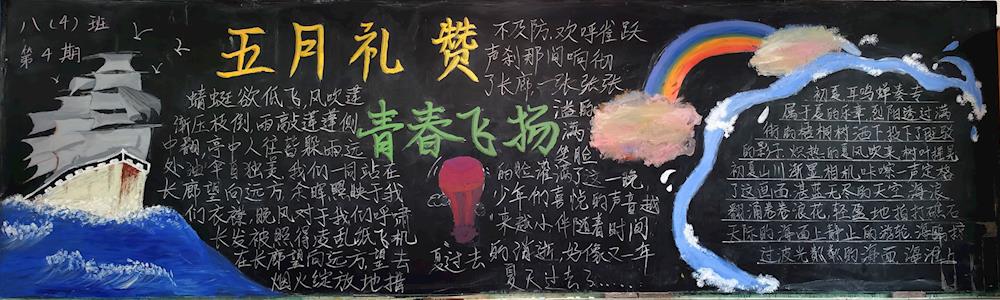 八(4)班
第4期
五月礼赞
青春飞扬
蜻蜓欲低飞,风吹莲
渐压枝倒,雨敲莲蓬侧
中翱,亭中人往皆躲雨远
处油伞自独美,我们一同站在
长廊望向远方,余晖照映于我
们衣襟,晚风对于我们呼啸
长发被照得凌乱纸飞机
在长廊望向远方望去
烟火绽放地措
不及防,欢呼雀跃
声刹那间响彻
了长廊,一张张张
溢的
满
笑脸
的脸灌满了这一晚
少年的喜悦的声音越
来越小伴随着时间
的消逝,好像又一年
夏过去
夏天过去了……
初夏耳鸣蝉奏专
属于夏的乐章,烈阳透过满
街的梧桐树洒下投下了斑驳
的影子,炽热的夏风吹来,树叶摇晃
初夏山川渐置相机咔嚓一声定格
了这画面,湛蓝无尽的天空,海浪
翻涌卷卷浪花,轻盈地拍打礁石
天际的海面上静止的孤轮,海鸥掠
过波光粼粼的海面,海滩上